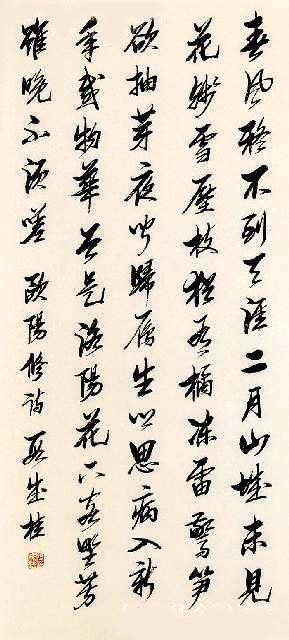 春風疑不到天涯二月山城未見
花殘雪壓枝猶有橘凍雷驚笋
欲抽芽夜聞歸雁生鄉思病入新
年感物華曾是洛陽花下客野芳
雖晚不須嗟 歐陽修詩 段成桂